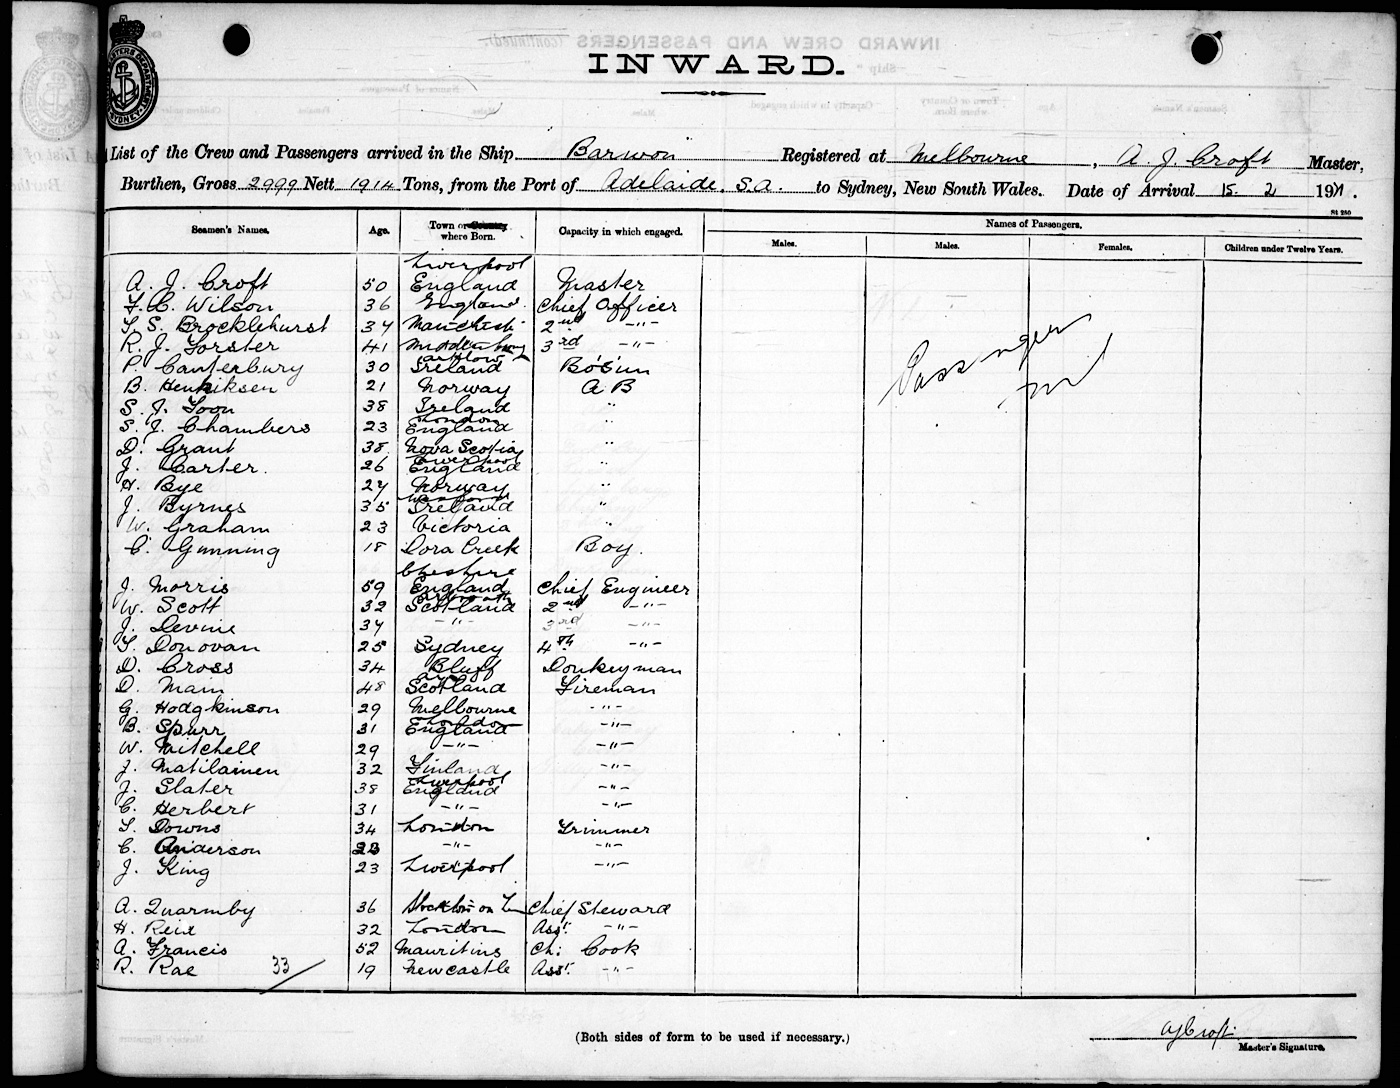 INWARD.
List of the Crew and Passengers arrived in the Ship Barwon Registered at Melbourne, A. J. Croft Master,
Burthen, Gross 2999 Nett 1914 Tons, from the Port of Adelaide. S.A. to Sydney, New South Wales. Date of Arrival 15. 2 191
St 250
Seamen's Names. Age. Town or Country where Born. Capacity in which engaged. Names of Passengers.
Males. Males. Females. Children under Twelve Years.
Liverpool
A. J. Croft 50 England Master
F. C. Wilson 36 England. Chief Officer
T. S. Brocklehurst 34 Manchest. 2nd -"-
R. J. Forster 41 3rd -"-
Arklow
P. Canterbury 30 Ireland Bo's'un
B. Henriksen 21 Norway A B
S. J. Toon 38 Ireland "
London
S. J. Chambers 23 England "
D. Grant 38 Nova Scotia "
Liverpool
J. Carter. 26 England "
H. Bye 27 Norway "
Wexford
J. Byrnes 35 Ireland "
W. Graham 23 Victoria "
C. Gunning 18 Dora Creek Boy.
Cheshire
J. Morris 59 England Chief Engineer
W. Scott 32 Scotland 2nd -"-
J. Devine 34 -"- 3rd -"-
T. Donovan 25 Sydney 4th -"-
D. Cross 34 Bluff Donkeyman
Ayr
D. Main 48 Scotland Fireman
G. Hodgkinson 29 Melbourne -"-
London
B. Spurr 31 England -"-
W. Mitchell 29 -"- -"-
J. Matilainen 32 Finland -"-
Liverpool
J. Slater 38 England -"-
C. Herbert 31 -"- -"-
T. Downs 34 London Trimmer
C. Anderson 23 -"- -"-
J. King 23 Liverpool -"-
A. Quarmby 36 Stockton on Chief Steward
H. Reid 32 London Asst. -"-
A. Francis 52 Mauritius Ch: Cook
R. Rae 19 Newcastle Asst. -"-
33
Passengers
nil
(Both sides of form to be used if necessary.)
AJCroft.
Master's Signature.